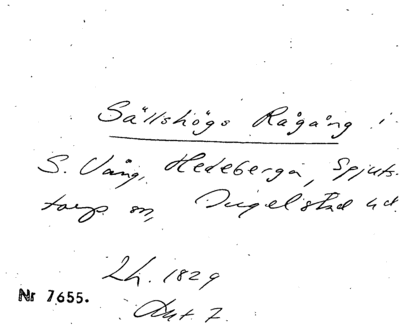 Sällshögs Rågång i
S. Vång, Hedeberga, Spjuts-
torp m,
Lh. 1829
Nr 7655.
Dut 7.